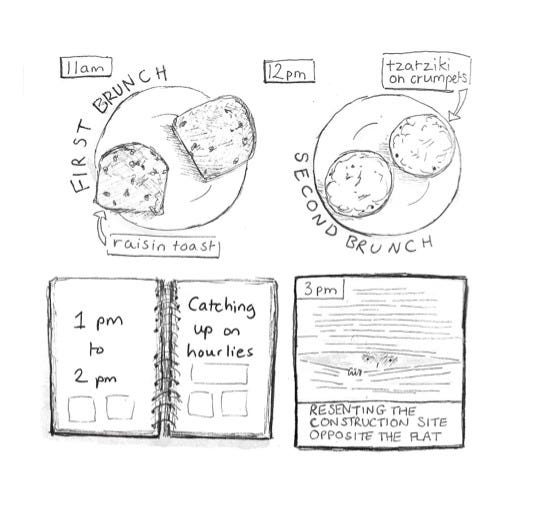 11am
FIRST BRUNCH
raisin toast
12pm
tzatziki
on crumpets
SECOND BRUNCH
1 pm
to
2 pm
Catching
up on
hourlies
3pm
RESENTING THE
CONSTRUCTION SITE
OPPOSITE THE FLAT